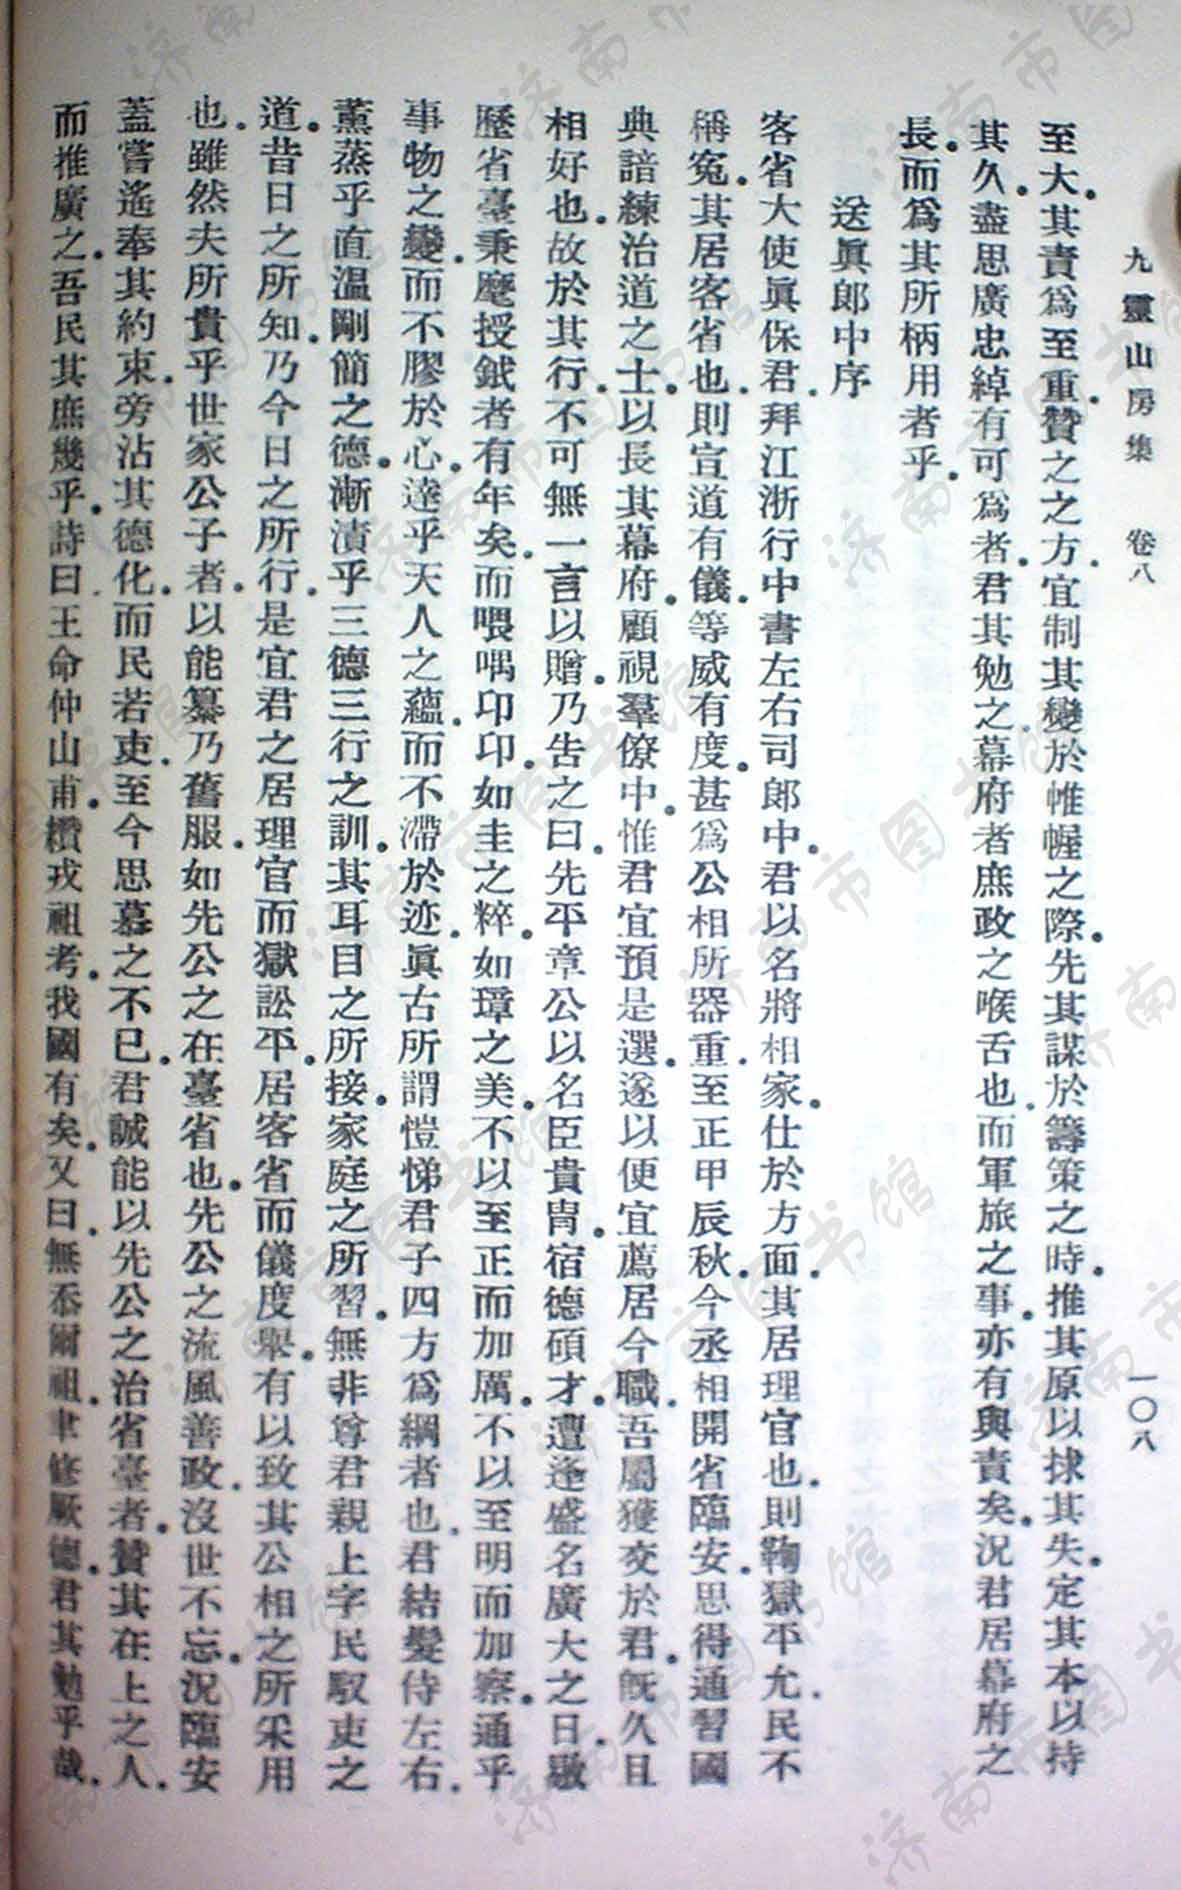 九靈山房集　卷八　一〇八
至大其責爲至重贊之之方宜制其變於帷幄之際先其謀於籌策之時推其原以捄其失定其本以持
其久盡思廣忠綽有可爲者君其勉之幕府者庶政之喉舌也而軍旅之事亦有與責矣況君居幕府之
長而爲其所柄用者乎
送眞郎中序
客省大使眞保君拜江浙行中書左右司郎中君以名將相家仕於方面其居理官也則鞫獄平允民不
稱冤其居客省也則宣道有儀等威有度甚爲公相所器重至正甲辰秋今丞相開省臨安思得通習國
典諳練治道之士以長其幕府顧視羣僚中惟君宜預是選遂以便宜薦居今職吾屬獲交於君旣久且
相好也故於其行不可無一言以贈乃告之曰先平章公以名臣貴胄宿德碩才遭逢盛名廣大之日敭
歷省臺秉麾授鉞者有年矣而喂喁卬卬如圭之粹如璋之美不以至正而加厲不以至明而加察通乎
事物之變而不膠於心達乎天人之蘊而不滯於迹眞古所謂愷悌君子四方爲綱者也君結髮侍左右
薰蒸乎直溫剛簡之德漸漬乎三德三行之訓其耳目之所接家庭之所習無非尊君親上字民馭吏之
道昔日之所知乃今日之所行是宜君之居理官而獄訟平居客省而儀度舉有以致其公相之所采用
也雖然夫所貴乎世家公子者以能纂乃舊服如先公之在臺省也先公之流風善政沒世不忘況臨安
蓋嘗遙奉其約束旁沾其德化而民若吏至今思慕之不已君誠能以先公之治省臺者贊其在上之人
而推廣之吾民其庶幾乎詩曰王命仲山甫纘戎祖考我國有矣又曰無忝爾祖聿修厥德君其勉乎哉
济南市图书馆